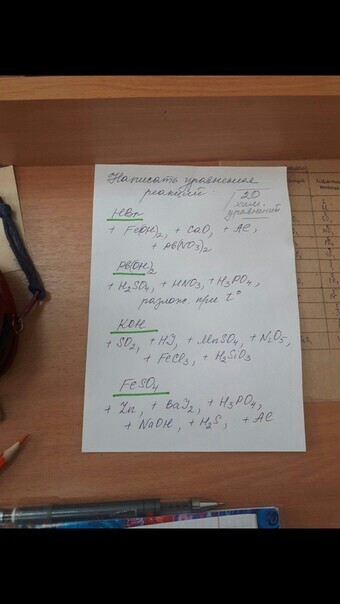 Написать уравнения
реакций
20
хим.
уравнений
HBr
+ Fe(OH)2, + CaO, + Al,
+ Pb(NO3)2
Pb(OH)2
+ H2SO4, + HNO3, + H3PO4,
разлож. при t°
KOH
+ SO2, + HJ, + MnSO4, + N2O5,
+ FeCl3, + H2SiO3
FeSO4
+ Zn, + BaJ2, + H3PO4,
+ NaOH, + H2S, + Al